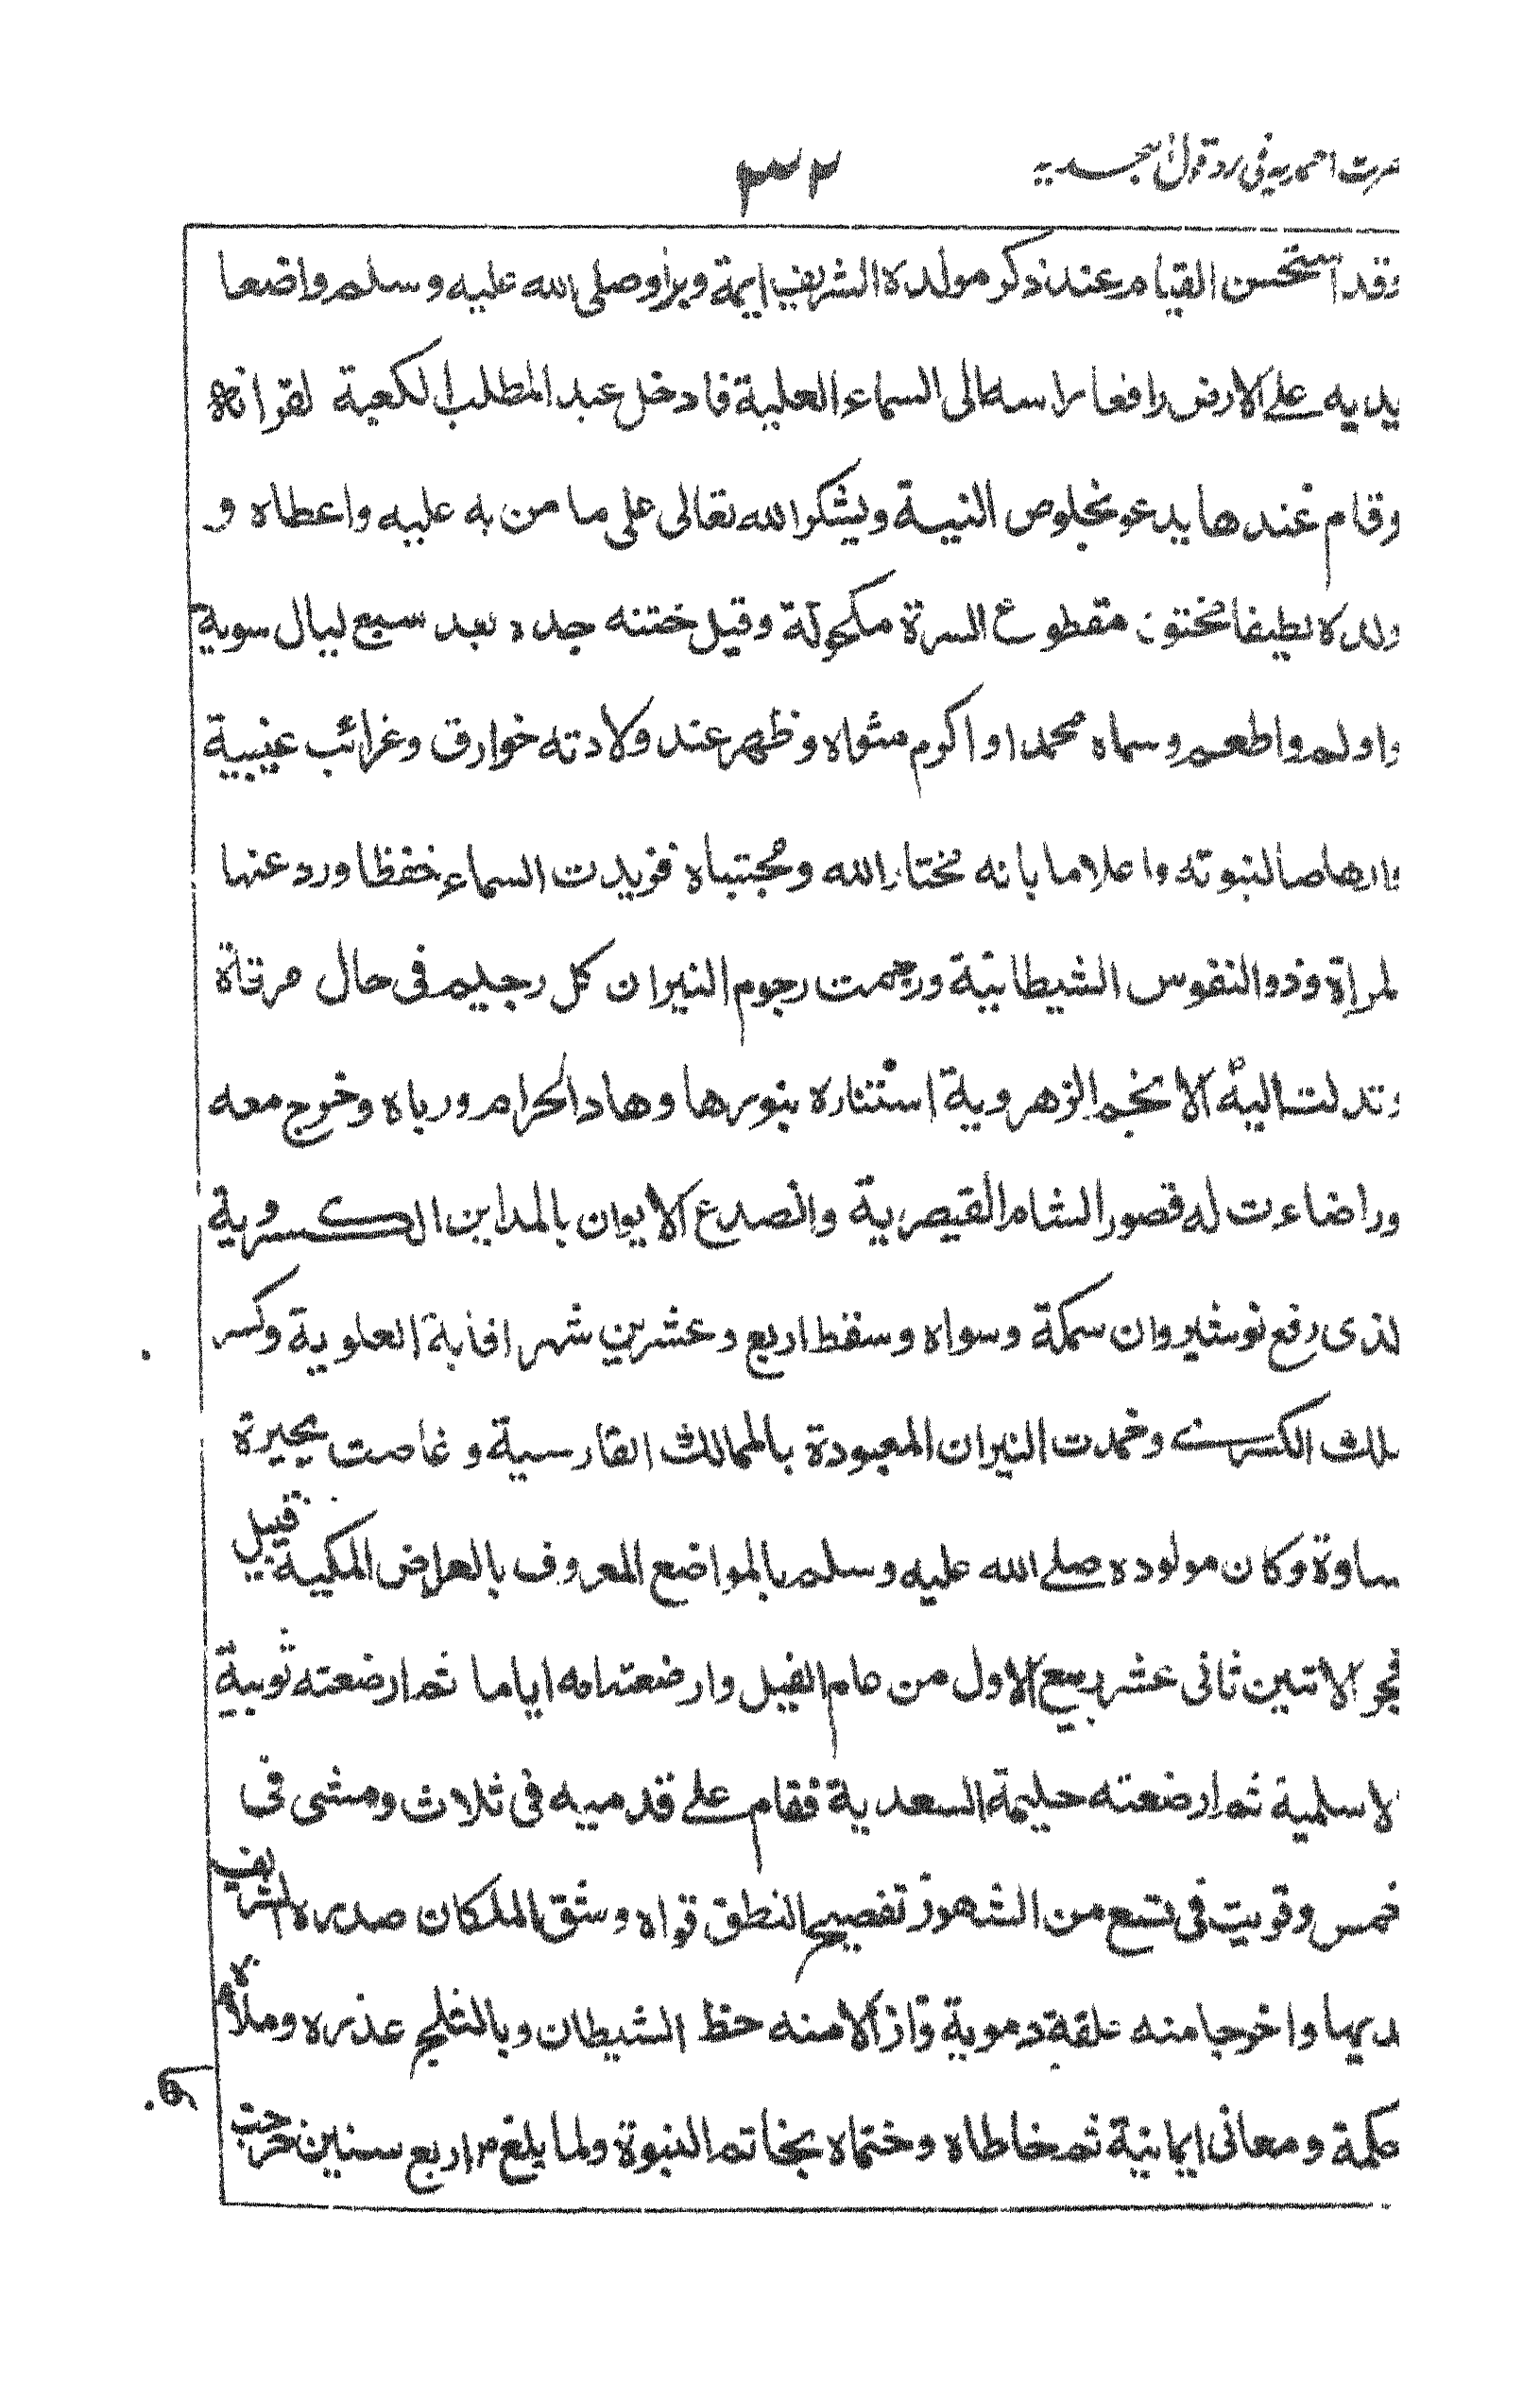 نصرت احمديه في رد قول نجديه ٣٣٢
وقد استحسن القيام عند ذكر مولده الشريف ايمة وبرزاو صلى الله عليه وسلم واضعا
يديه على الارض رافعا راسه الى السماء العلية فادخل عبد المطلب الكعبة
وقام عندها يدعو بخلوص النية ويشكر الله تعالى على ما من به عليه واعطاه و
ولده نظيفا مختون مقطوع السرة مكحولة وقيل ختنه جده بعد سبع ليال سوية
واولم واطعم وسماه محمدا واكرم مثواه وظهر عند ولادته خوارق وغرائب غيبية
وارهاصا لنبوته واعلاما بانه مختار الله ومجتباه فزيدت السماء حفظا ورد عنها
لمراة وذو النفوس الشيطانية ورجمت رجوم النيران كل رجيم في حال مرقاة
وتدلت اليه الانجم الزهروية استنارة بنورها وهاد الحرام ورباه وخرج معه
ور اضاءت له قصور الشام القيصرية وانصدع الايوان بالمداين الكسروية
لذى رفع نوشيروان سمكة وسواه وسقط اربع وعشرين شهر افابة العلوية وكسر
ملك الكسرى وخمدت النيران المعبودة بالممالك الفارسية و غاصت بحيرة
ساوة وكان مولوده صلى الله عليه وسلم بالمواضع المعروف بالعراض المكية قبيل
فجر الاثنين ثانى عشر ربيع الاول من عام الفيل وارضعته امه اياما ثم ارضعته ثوبية
لاسلمية ثم ارضعته حليمة السعدية فقام على قدميه في ثلاث ومشى في
خمس وقويت في تسع من الشهور تفصيح النطق قواه وشق الملكان صدره الشريف
لديها واخرجا منه علقة دموية وازالا منه حظ الشيطان وبالثلج عذره وملاه
حكمة ومعانى ايمانية ثم خاطاه وختماه بخاتم النبوة ولما بلغ م اربع سنين خرجت